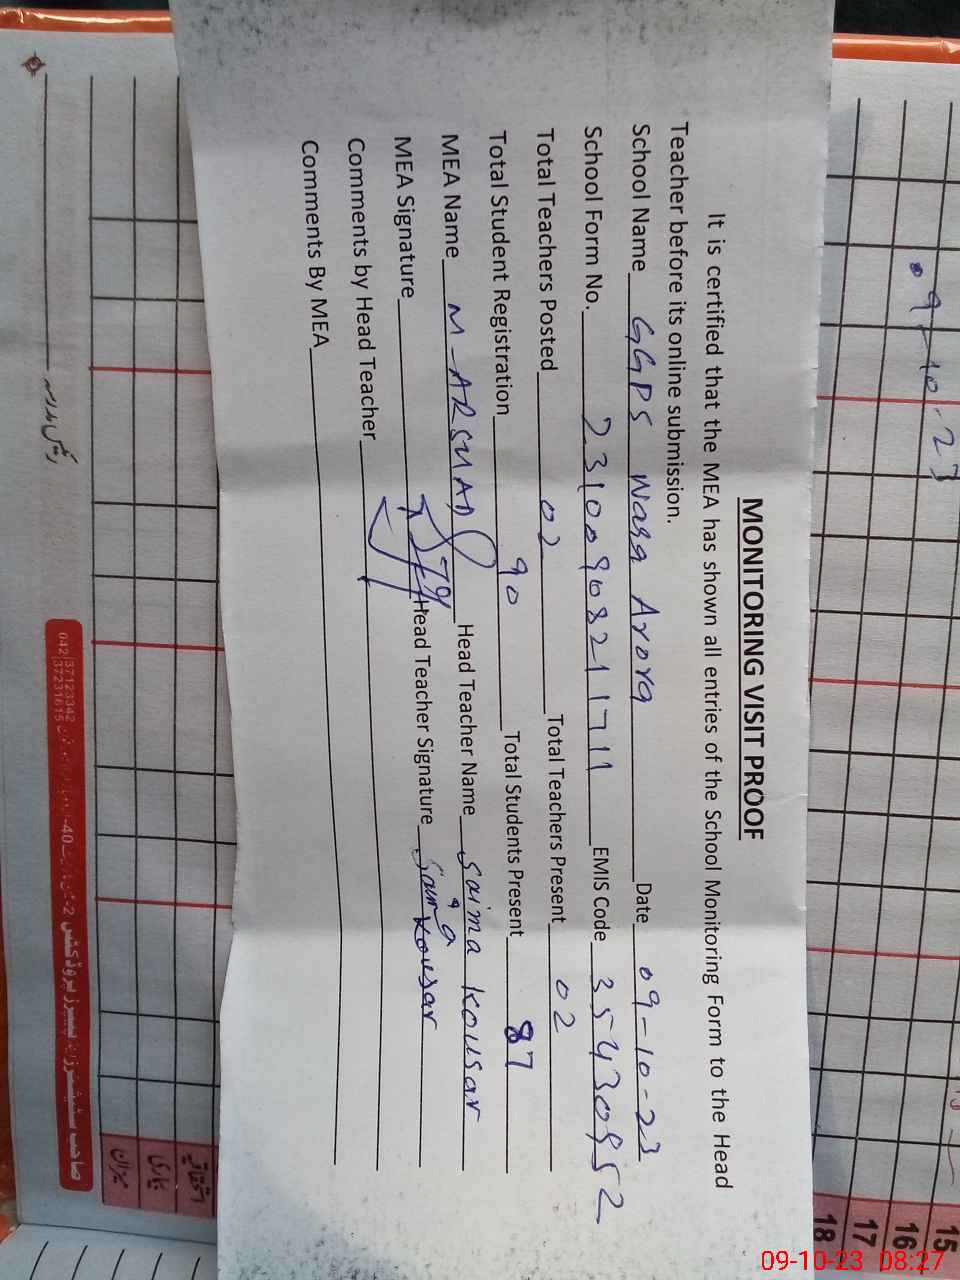 MONITORING VISIT PROOF
It is certified that the MEA has shown all entries of the School Monitoring Form to the Head
Teacher before its online submission.
School Name GGPS Wara Arora Date 09-10-23
School Form No. 23100908211711 EMIS Code 35430952
Total Teachers Posted 02 Total Teachers Present 02
Total Student Registration 90 Total Students Present 87
MEA Name M-ARSHAD Head Teacher Name Saima Kousar
MEA Signature Head Teacher Signature Saima Kousar
Comments by Head Teacher
Comments By MEA
09-10-23
15
16
17
18
صاحب سٹیشنرز اینڈ پیپرز پروڈکٹس
042
37123342
37231615
میزان
09-10-23 08:27